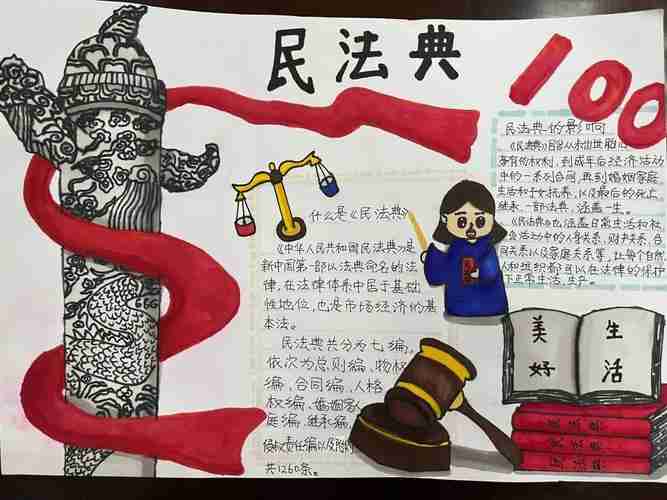 民法典
100
什么是《民法典》
《中华人民共和国民法典》是
新中国第一部以法典命名的法
律,在法律体系中居于基础
性地位,也是市场经济的基
本法。
民法典共分为七编,
依次为总则编、物权
编、合同编、人格
权编、婚姻家
庭编、继承编、
侵权责任编以及附则
共1260条。
民法典的影响
《民法典》
各有的权利,到成年后经济活动
中的一系列合同,再到婚姻家庭
生活和子女抚养,以及最后的死亡
继承,一部法典,涵盖一生。
《民法典》也涵盖日常生活和社
会活动中的人身关系、财产关系、合
同关系以及家庭关系等,让每个自然
人和组织都可以在法律的保护
下正常生活,生产。
美好
生活
民法典
民法典
民法典